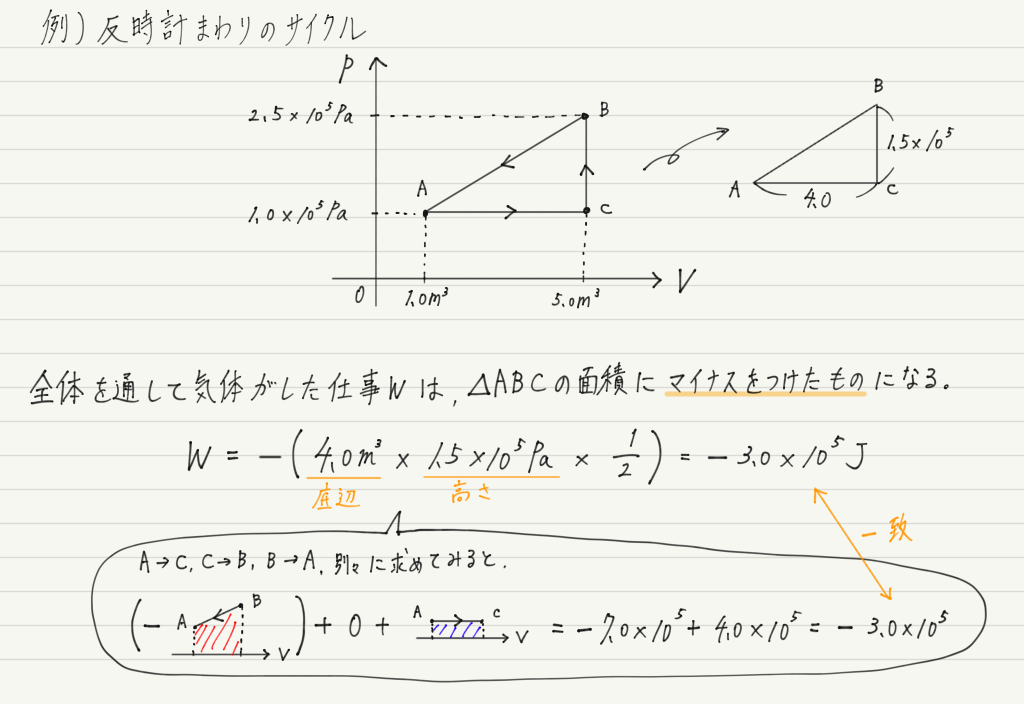 例) 反時計まわりのサイクル
P
2.5×10⁵Pa
B
A
1.0×10⁵Pa
C
0
1.0m³
5.0m³
V
B
1.5×10⁵
A
4.0
C
全体を通して気体がした仕事Wは, △ABCの面積にマイナスをつけたものになる.
W = -(4.0m³ × 1.5×10⁵Pa × 1/2) = -3.0×10⁵J
底辺
高さ
一致
A→C, C→B, B→A, 別々に求めてみると.
(- A B V) + 0 + A C V = -7.0×10⁵ + 4.0×10⁵ = -3.0×10⁵